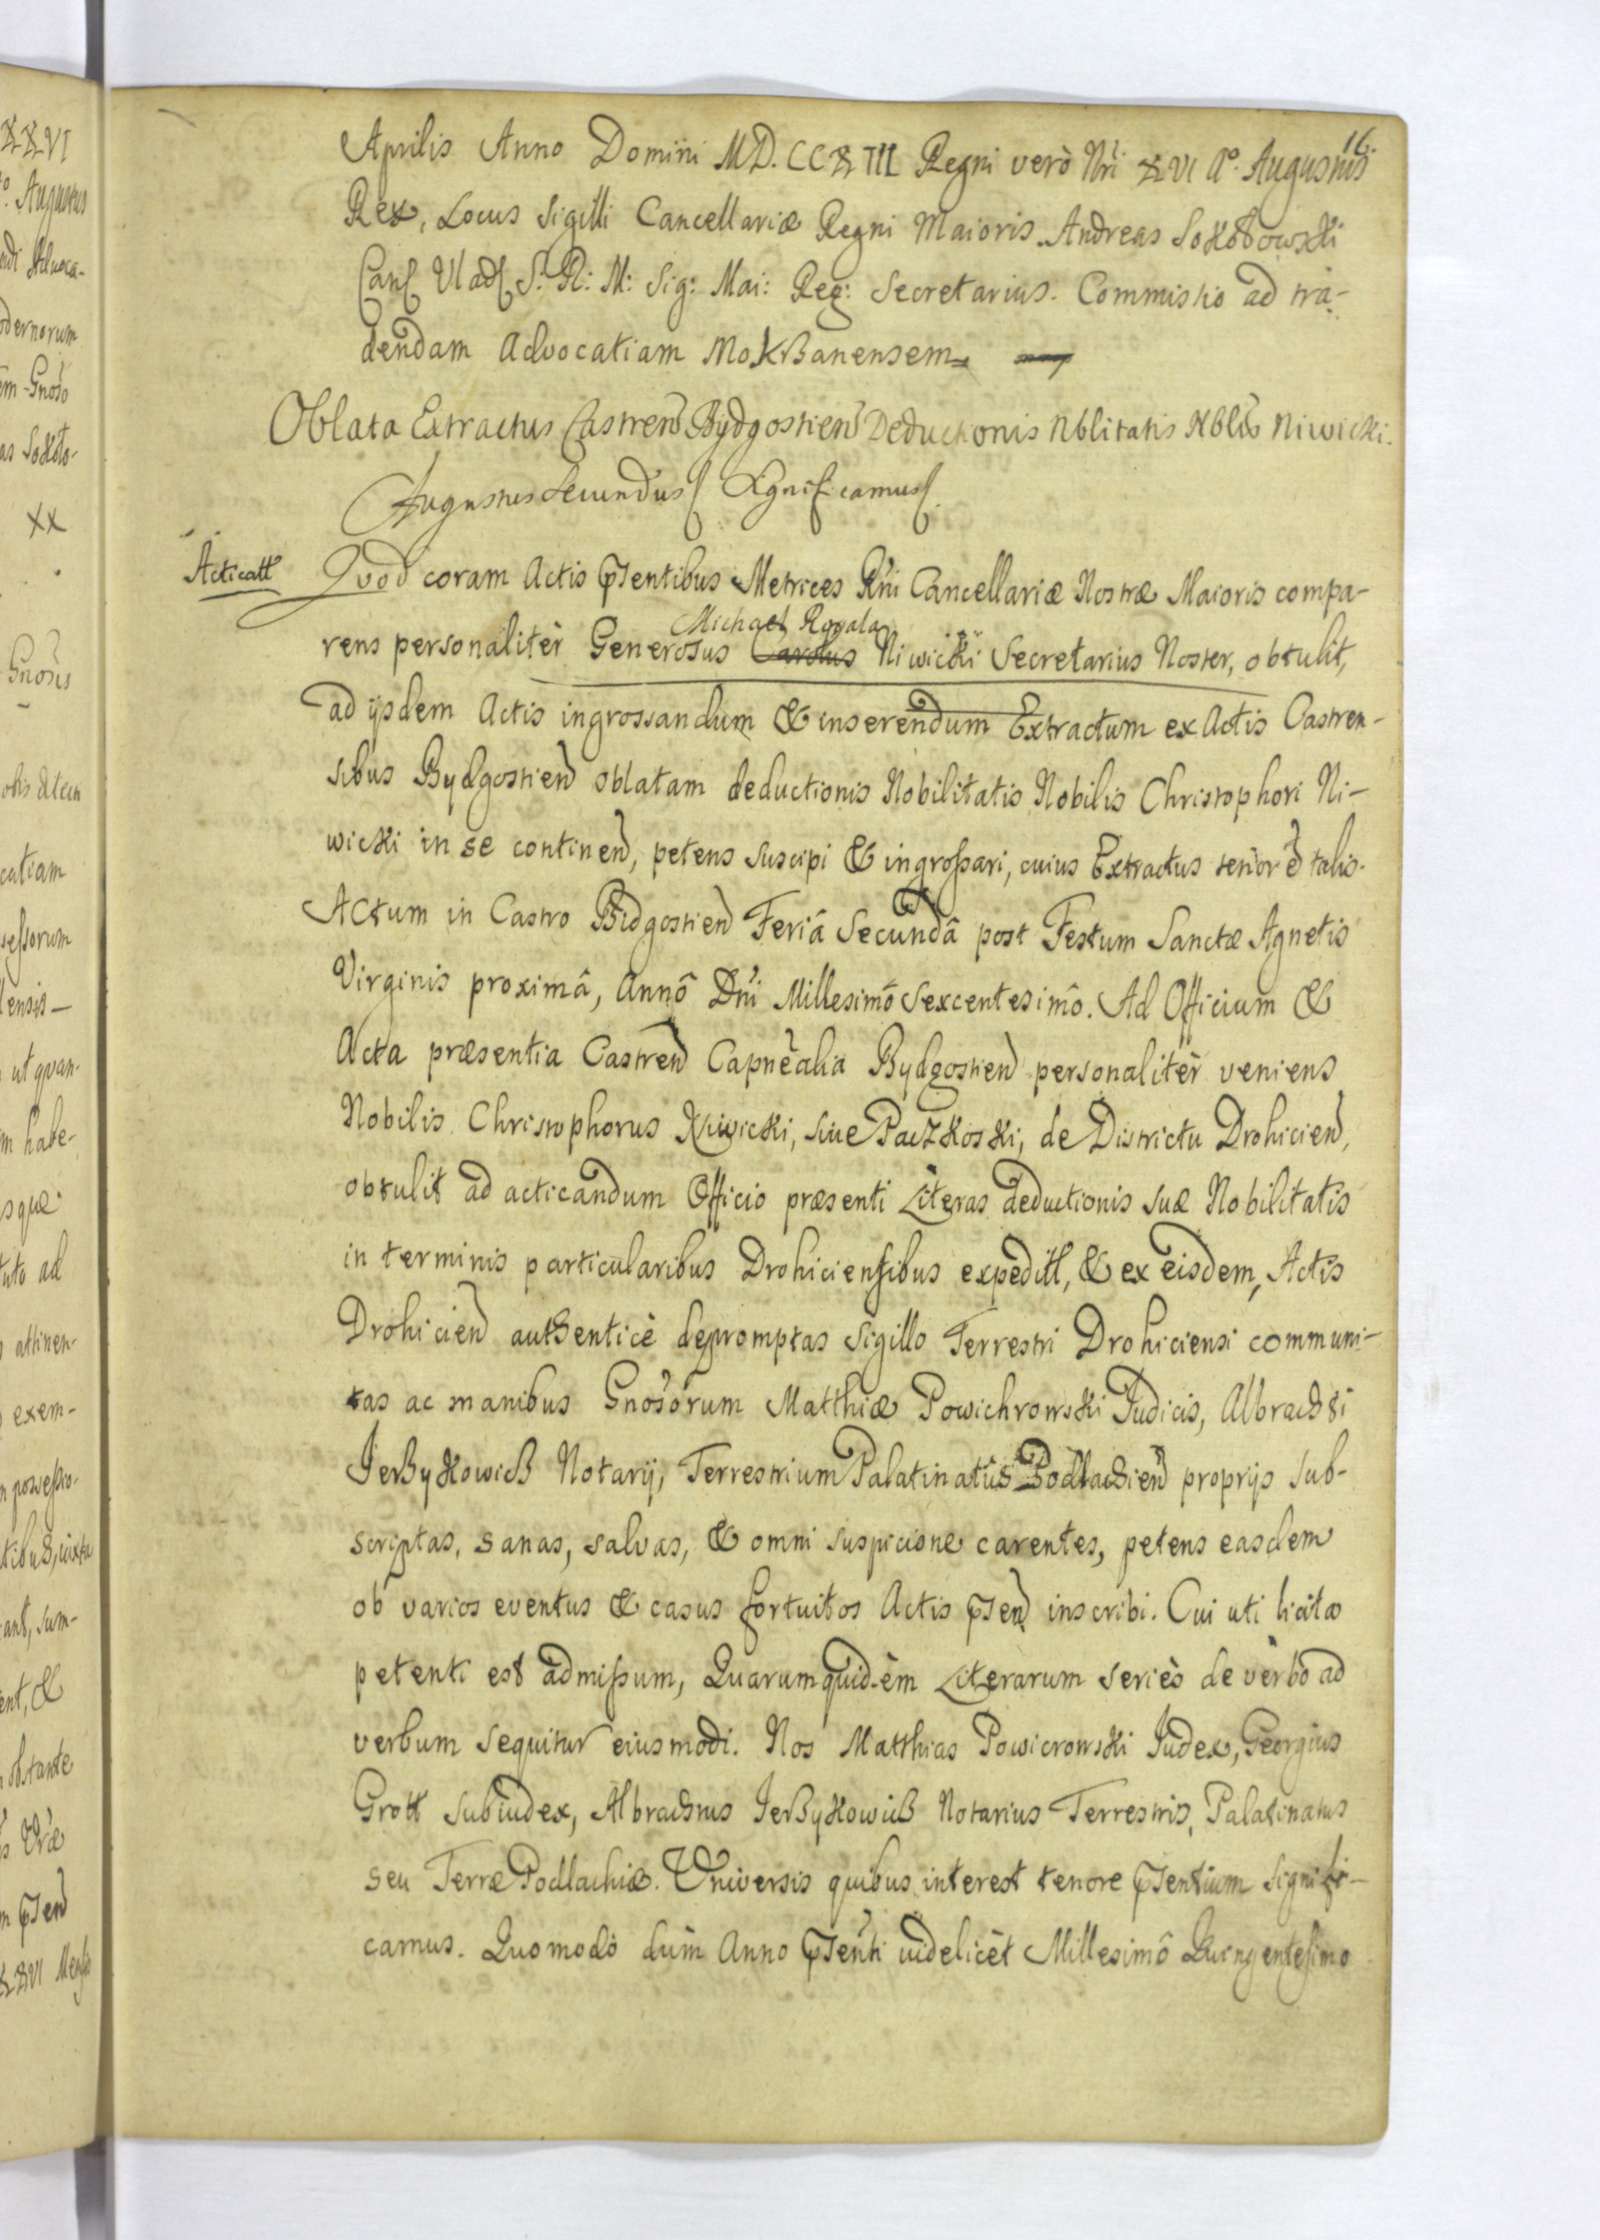 16.
Aprilis Anno Domini MD.CCXIII Regni verò Nri XVI Aº. Augustus
Rex, Locus Sigilli Cancellariæ Regni Maioris. Andreas Sokołowski
Can Vlad S: R: M: Sig: Mai: Reg: Secretarius. Commissio ad tra-
dendam Advocatiam Mokßanensem
Oblata Extractus Castren Bydgostien Deductionis Nblitatis Nblis Niwicki.
Augustus Secundus Significamus
Acticatt
Quod coram Actis psentibus Metrices Rni Cancellariæ Nostræ Maioris compa-
Michael Rogala
rens personalitèr Generosus Carolus Niwicki Secretarius Noster, obtulit,
ad ijsdem Actis ingrossandum & inserendum Extractum ex Actis Castren-
sibus Bydgostien oblatam deductionis Nobilitatis Nobilis Christophori Ni-
wicki in se continen, petens suscipi & ingrossari, cuius Extractus tenor ẽ talis.
Actum in Castro Bidgostien Feriâ Secundâ post Festum Sanctæ Agnetis
Virginis proximâ, Annô Dni Millesimô Sexcentesimô. Ad Officium &
Acta præsentia Castren Capnealia Bydgostien personalitèr veniens
Nobilis Christophorus Niwicki, siue Paczkoski, de Districtu Drohicien,
obtulit ad acticandum Officio præsenti Literas deductionis suæ Nobilitatis
in terminis particularibus Drohiciensibus expeditt, & ex eisdem Actis
Drohicien authenticè depromptas Sigillo Terrestri Drohiciensi communi-
tas ac manibus Gnosorum Matthiæ Powichrowski Judicis, Albrachti
Jerßykowicß Notarij, Terrestrium Palatinatûs Podlachien proprijs sub-
scriptas, sanas, salvas, & omni suspicione carentes, petens easdem
ob varios eventus & casus fortuitos Actis psen inscribi. Cui uti licitæ
petenti est admissum, Quarumquidèm Literarum seriès de verbo ad
verbum sequitur eiusmodi. Nos Matthias Powicrowski Judex, Georgius
Grott Subiudex, Albrachtus Jerßykowicß Notarius Terrestris, Palatinatus
seu Terræ Podlachiæ. Universis quibus interest tenore psentium signifi-
camus. Quomodo dùm Anno psenti uidelicèt Millesimô Quingentesimo